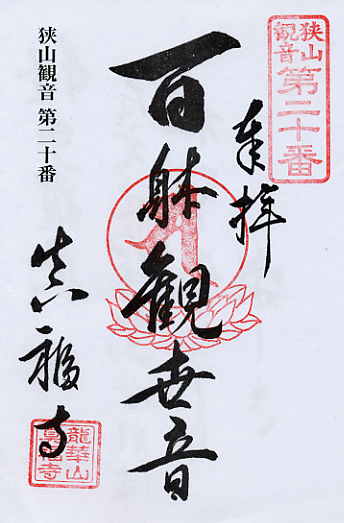 狭山
観音
第二十番
奉拝
百躰観世音
真福寺
狭山観音 第二十番
龍華山
真福寺